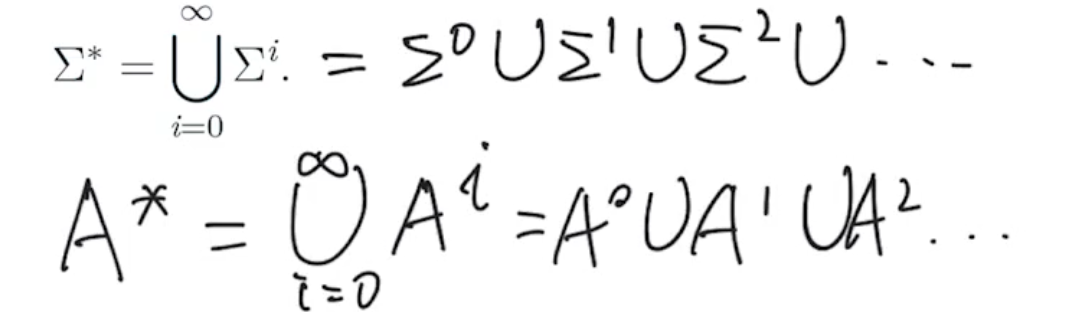 $\Sigma^* = \bigcup_{i=0}^{\infty} \Sigma^i. = \Sigma^0 \cup \Sigma^1 \cup \Sigma^2 \cup \cdots$
$A^* = \bigcup_{i=0}^{\infty} A^i = A^0 \cup A^1 \cup A^2 \ldots$